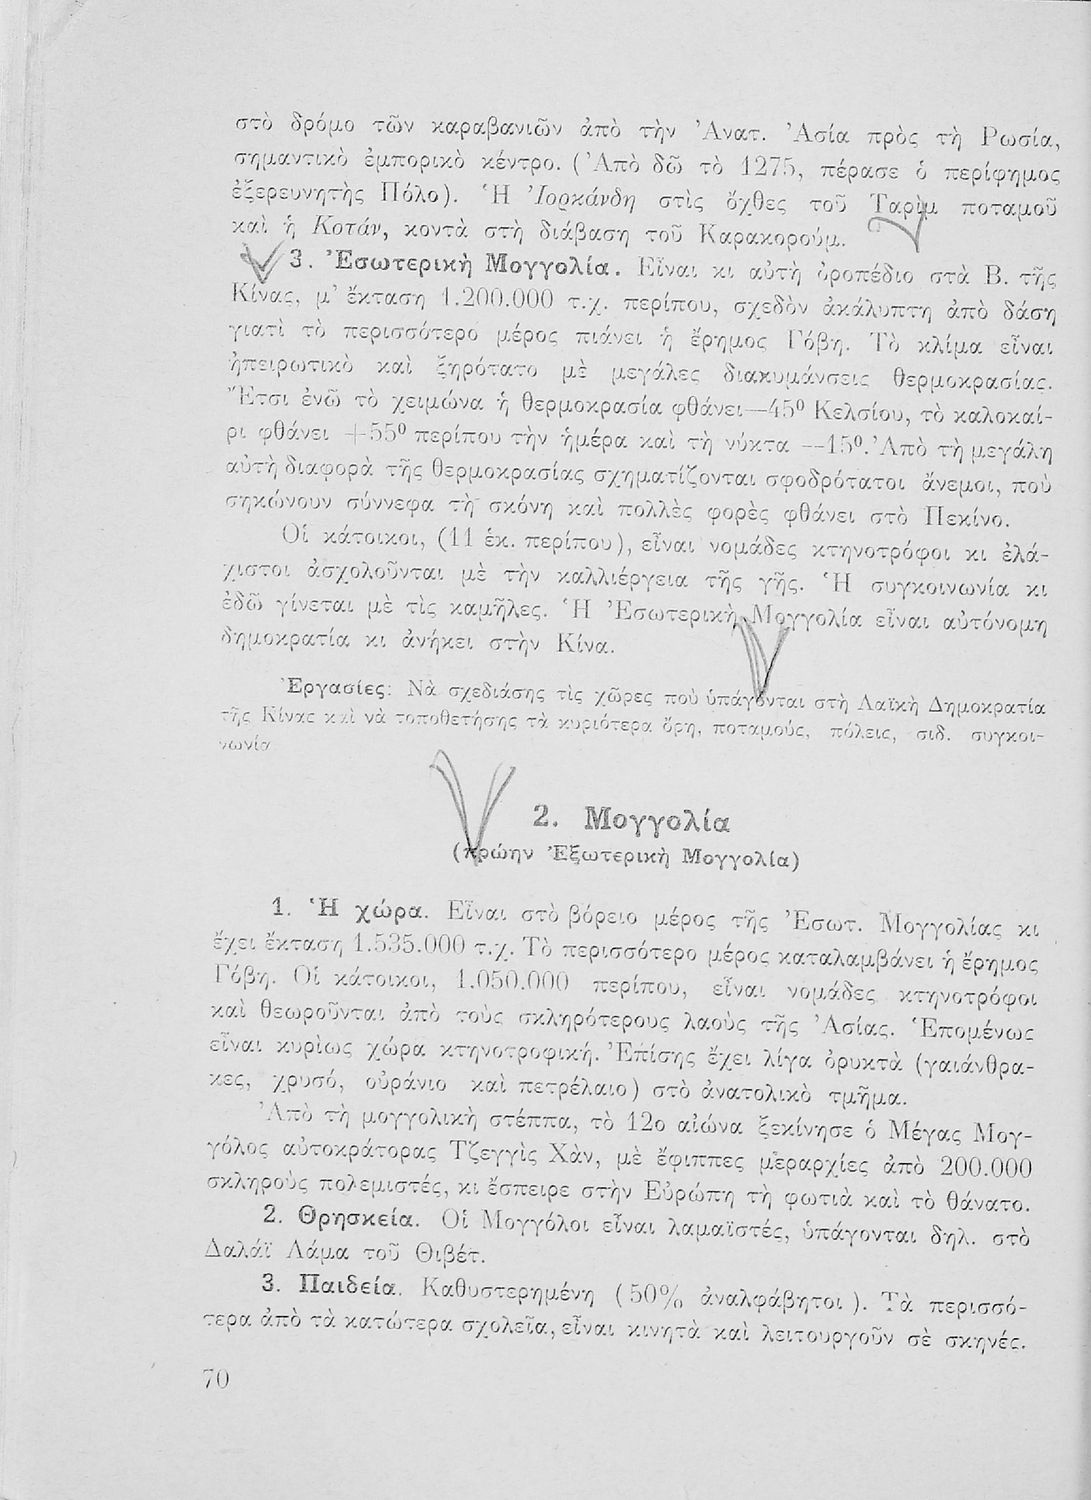 στὸ δρόμο τῶν καραβανιῶν ἀπὸ τὴν Ἀνατ. Ἀσία πρὸς τὴ Ρωσία,
σημαντικὸ ἐμπορικὸ κέντρο. (Ἀπὸ δῶ τὸ 1275, πέρασε ὁ περίφημος
ἐξερευνητὴς Πόλο). Ἡ Ἰορκάνδη στὶς ὄχθες τοῦ Ταρὶμ ποταμοῦ
καὶ ἡ Κοτάν, κοντὰ στὴ διάβαση τοῦ Καρακορούμ.
3. Ἐσωτερικὴ Μογγολία. Εἶναι κι αὐτὴ ὀροπέδιο στὰ Β. τῆς
Κίνας, μ' ἔκταση 1.200.000 τ.χ. περίπου, σχεδὸν ἀκάλυπτη ἀπὸ δάση
γιατὶ τὸ περισσότερο μέρος πιάνει ἡ ἔρημος Γόβη. Τὸ κλίμα εἶναι
ἠπειρωτικὸ καὶ ξηρότατο μὲ μεγάλες διακυμάνσεις θερμοκρασίας.
Ἔτσι ἐνῶ τὸ χειμώνα ἡ θερμοκρασία φθάνει —45⁰ Κελσίου, τὸ καλοκαί-
ρι φθάνει +55⁰ περίπου τὴν ἡμέρα καὶ τὴ νύκτα —15⁰. Ἀπὸ τὴ μεγάλη
αὐτὴ διαφορὰ τῆς θερμοκρασίας σχηματίζονται σφοδρότατοι ἄνεμοι, ποὺ
σηκώνουν σύννεφα τὴ σκόνη καὶ πολλὲς φορὲς φθάνει στὸ Πεκίνο.
Οἱ κάτοικοι, (11 ἑκ. περίπου), εἶναι νομάδες κτηνοτρόφοι κι ἐλά-
χιστοι ἀσχολοῦνται μὲ τὴν καλλιέργεια τῆς γῆς. Ἡ συγκοινωνία κι
ἐδῶ γίνεται μὲ τὶς καμῆλες. Ἡ Ἐσωτερικὴ Μογγολία εἶναι αὐτόνομη
δημοκρατία κι ἀνήκει στὴν Κίνα.
Ἐργασίες: Νὰ σχεδιάσης τὶς χῶρες ποὺ ὑπάγονται στὴ Λαϊκὴ Δημοκρατία
τῆς Κίνας καὶ νὰ τοποθετήσης τὰ κυριότερα ὄρη, ποταμούς, πόλεις, σιδ. συγκοι-
νωνία
2. Μογγολία
(πρώην Ἐξωτερικὴ Μογγολία)
1. Ἡ χώρα. Εἶναι στὸ βόρειο μέρος τῆς Ἐσωτ. Μογγολίας κι
ἔχει ἔκταση 1.535.000 τ.χ. Τὸ περισσότερο μέρος καταλαμβάνει ἡ ἔρημος
Γόβη. Οἱ κάτοικοι, 1.050.000 περίπου, εἶναι νομάδες κτηνοτρόφοι
καὶ θεωροῦνται ἀπὸ τοὺς σκληρότερους λαοὺς τῆς Ἀσίας. Ἑπομένως
εἶναι κυρίως χώρα κτηνοτροφική. Ἐπίσης ἔχει λίγα ὀρυκτὰ (γαιάνθρα-
κες, χρυσό, οὐράνιο καὶ πετρέλαιο) στὸ ἀνατολικὸ τμῆμα.
Ἀπὸ τὴ μογγολικὴ στέππα, τὸ 12ο αἰώνα ξεκίνησε ὁ Μέγας Μογ-
γόλος αὐτοκράτορας Τζεγγὶς Χὰν, μὲ ἔφιππες μεραρχίες ἀπὸ 200.000
σκληροὺς πολεμιστές, κι ἔσπειρε στὴν Εὐρώπη τὴ φωτιὰ καὶ τὸ θάνατο.
2. Θρησκεία. Οἱ Μογγόλοι εἶναι λαμαϊστές, ὑπάγονται δηλ. στὸ
Δαλάϊ Λάμα τοῦ Θιβέτ.
3. Παιδεία. Καθυστερημένη (50% ἀναλφάβητοι). Τὰ περισσό-
τερα ἀπὸ τὰ κατώτερα σχολεῖα, εἶναι κινητὰ καὶ λειτουργοῦν σὲ σκηνές.
70